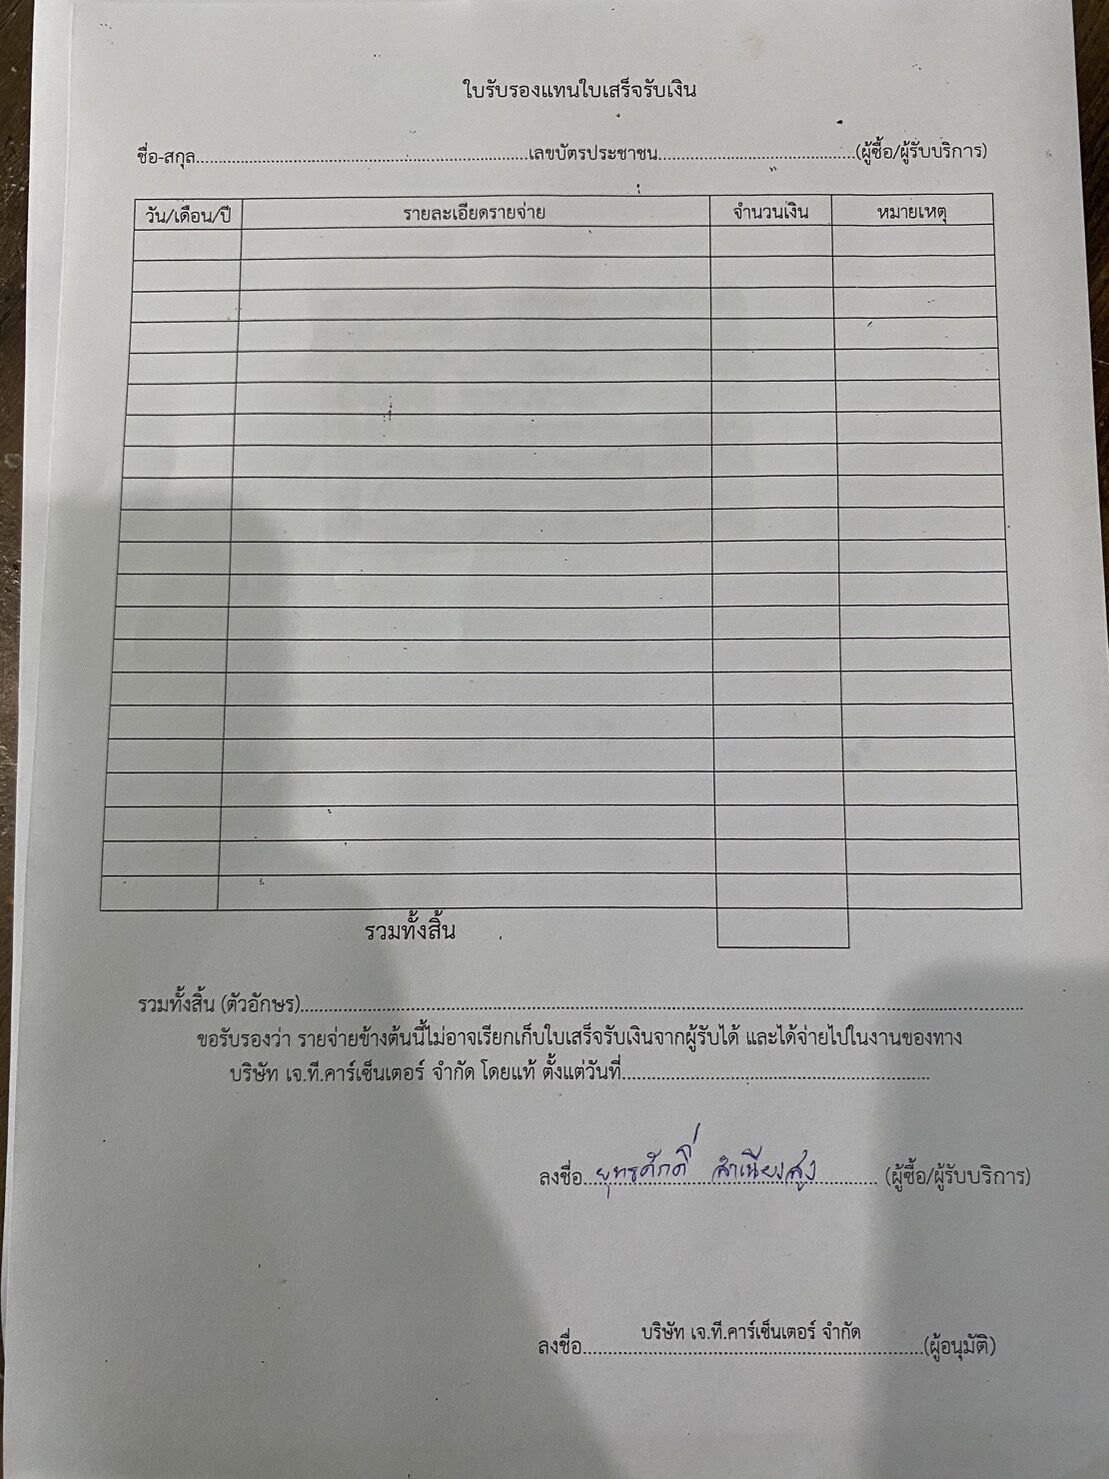 ใบรับรองแทนใบเสร็จรับเงิน
ชื่อ-สกุล....................................................................เลขบัตรประชาชน........................................(ผู้ซื้อ/ผู้รับบริการ)
วัน/เดือน/ปี รายละเอียดรายจ่าย จำนวนเงิน หมายเหตุ
รวมทั้งสิ้น
รวมทั้งสิ้น (ตัวอักษร)....................................................................................................................
ขอรับรองว่า รายจ่ายข้างต้นนี้ไม่อาจเรียกเก็บใบเสร็จรับเงินจากผู้รับได้ และได้จ่ายไปในงานของทาง
บริษัท เจ.ที.คาร์เซ็นเตอร์ จำกัด โดยแท้ ตั้งแต่วันที่..............................................................
ลงชื่อ ยุทธศักดิ์ สำเนียงสูง (ผู้ซื้อ/ผู้รับบริการ)
บริษัท เจ.ที.คาร์เซ็นเตอร์ จำกัด
ลงชื่อ....................................................................(ผู้อนุมัติ)